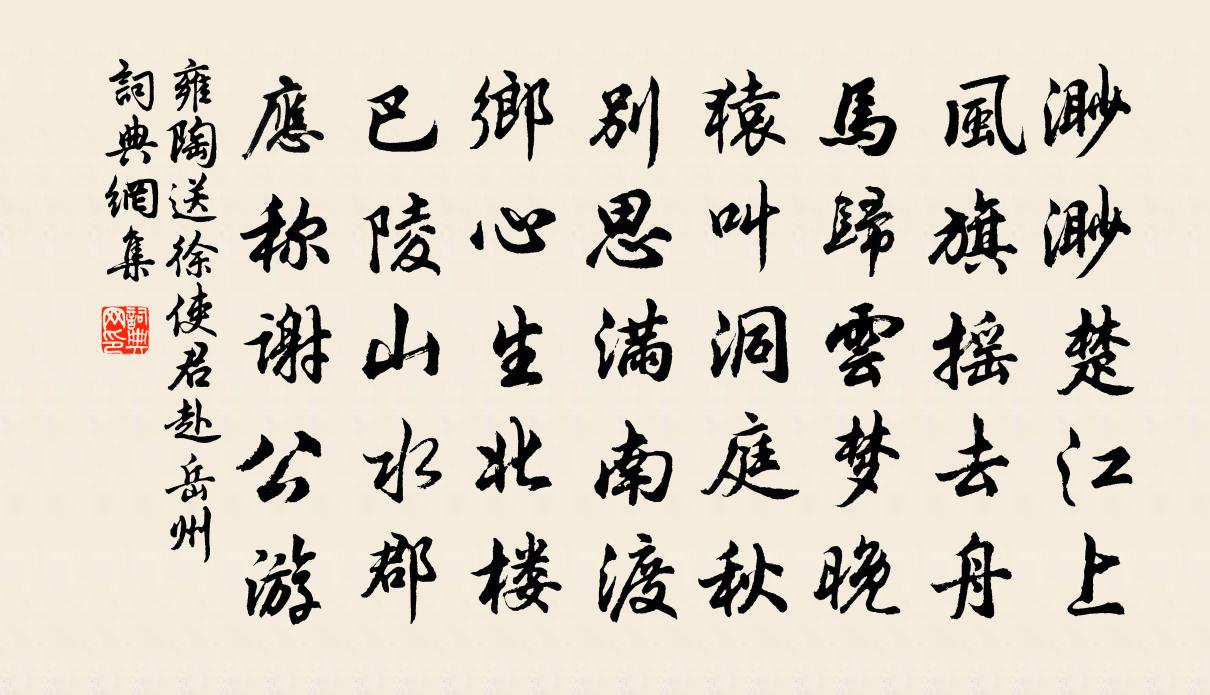 渺渺楚江上
風旗摇去舟
馬歸雲梦晚
猿叫洞庭秋
别思满南渡
鄉心生北楼
巴陵山水郡
應称谢公游
雍陶送徐使君赴岳州
詞典網集
詞典网印